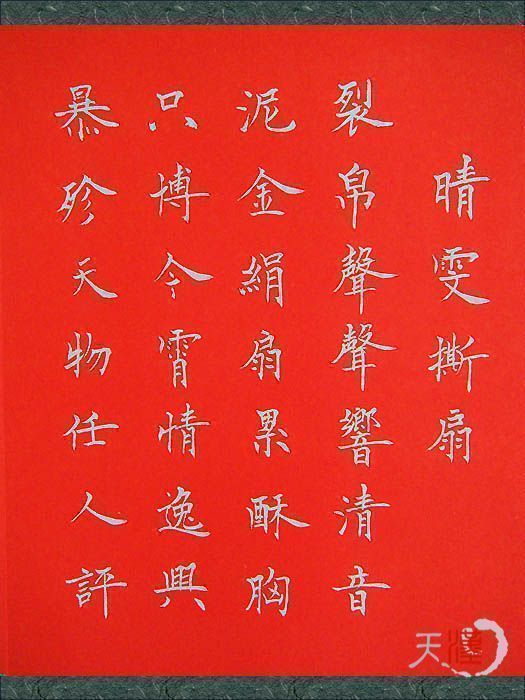 晴雯撕扇
裂帛聲聲響清音
泥金絹扇累酥胸
只博今霄情逸興
暴殄天物任人評
天漢